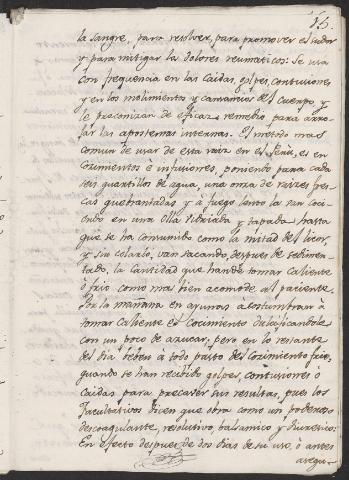 15.
la sangre, para resolver, para promover el sudor
y para mitigar la dolores reumaticos: Se usa
con frequencia en las Caidas, golpes, contusiones
y en los molimientos y cansancios del Cuerpo, y
le preconizan de eficaz remedio para arro-
jar las apostemas internas. El metodo mas
comun de usar de esta raiz en el Perù, es en
Cocimientos è infusiones, poniendo para cada
seis quartillos de agua, una onza de raizes fres-
cas quebrantadas y à fuego lento la van Coci-
endo en una olla vidriada y tapada hasta
que se ha consumido como la mitad del licor,
y sin colarlo, van sacando despues de sedimen-
tado, la Cantidad que han de tomar caliente
ò frio como mas bien acomode al paciente.
Por la mañana en ayunas acostumbran à
tomar caliente el Cocimiento dulcificandole
con un poco de azucar, pero en lo restante
del dia beben à todo pasto del Cocimiento frio,
quando se han recibido golpes, contusiones ò
Caidas para precaver sus resultas, pues los
facultativos dicen que obra como un poderoso
descoagulante, resolutivo, balsamico y diuretico.
En efecto despues de dos dias de su uso, ò antes
asegu-